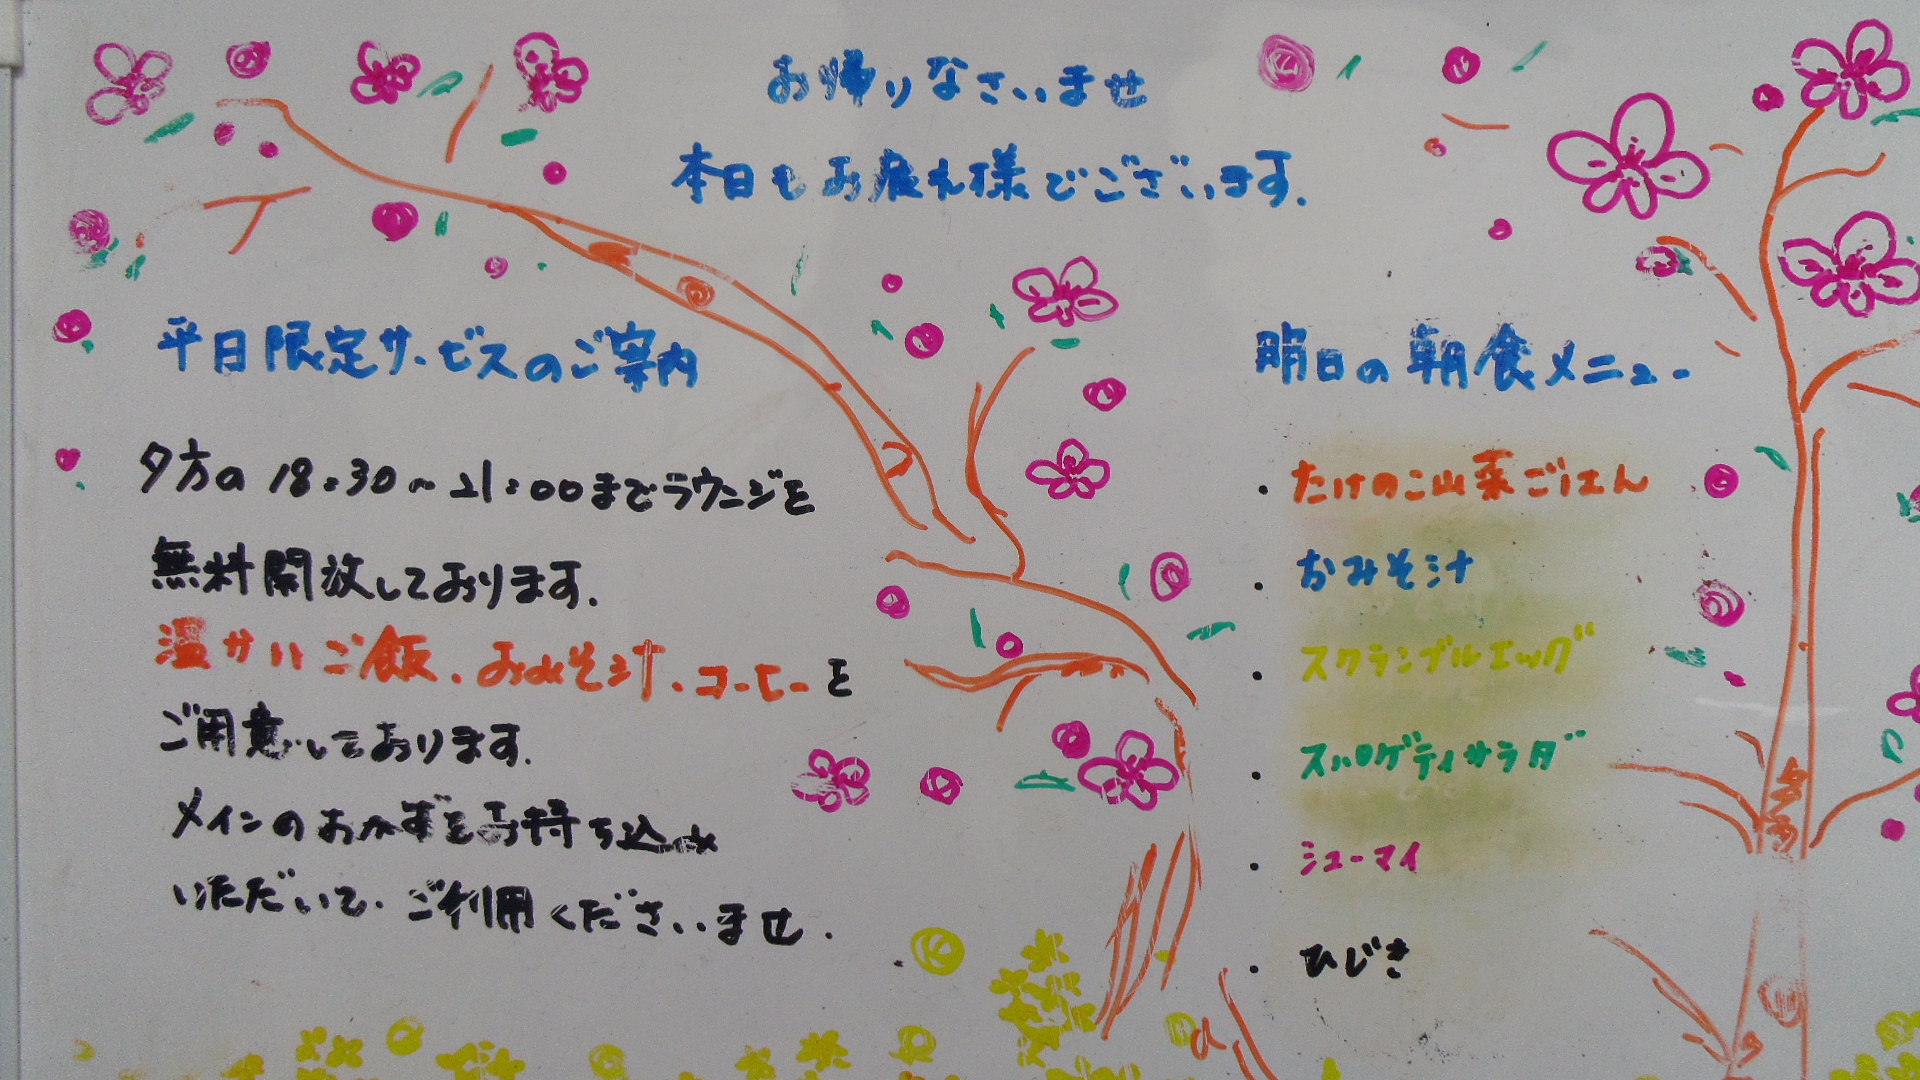 お帰りなさいませ
本日もお疲れ様でございます.
平日限定サービスのご案内
夕方の18:30〜21:00までラウンジを
無料開放しております.
温かいご飯、おみそ汁、コーヒーを
ご用意しております.
メインのおかずをお持ち込み
いただいて、ご利用くださいませ.
明日の朝食メニュー
・たけのこ山菜ごはん
・おみそ汁
・スクランブルエッグ
・スパゲティサラダ
・シューマイ
・ひじき